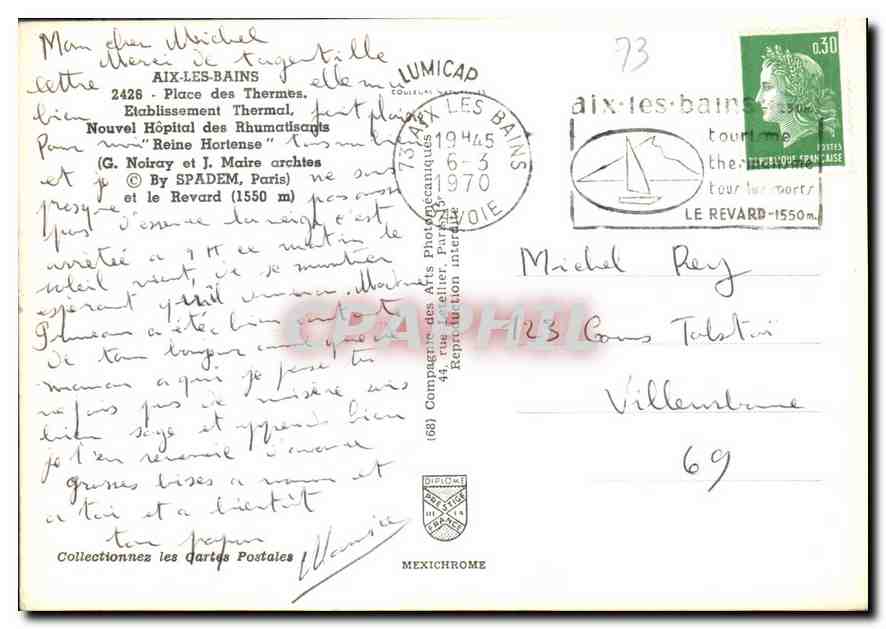 Mon cher Michel
Merci de ta gentille
lettre elle m'a
bien fait plaisir
AIX-LES-BAINS
2426 - Place des Thermes.
Etablissement Thermal,
Nouvel Hôpital des Rhumatisants
"Reine Hortense"
(G. Noiray et J. Maire archtes
© By SPADEM, Paris)
et le Revard (1550 m)
Pour moi
et je ne suis
presque pas
pas d'essence la neige s'est
arretée a 9 H ce matin le
soleil vient de se montrer
esperant qu'il
Pruneau a été bien
de ton
maman a qui je pense tu
ne fais pas de misère sois
bien sage et apprends bien
je t'en remercie d'avance
grosses bises a maman et
a toi et a bientôt
ton papa
Maurice
Collectionnez les Cartes Postales !
LUMICAP
COULEURS NATURELLES
(68) Compagnie des Arts Photomécaniques
44, rue Letellier, Paris-15e
Reproduction interdite
DIPLOME
PRESTIGE
FRANCE
MEXICHROME
73
73 AIX LES BAINS
19H45
6-3
1970
SAVOIE
aix-les-bains
tourisme
thermalisme
tous les sports
LE REVARD-1550m.
0,30
POSTES
REPUBLIQUE FRANÇAISE
Michel Rey
123 Cours Tolstoï
Villeurbanne
69
CPAPHIL